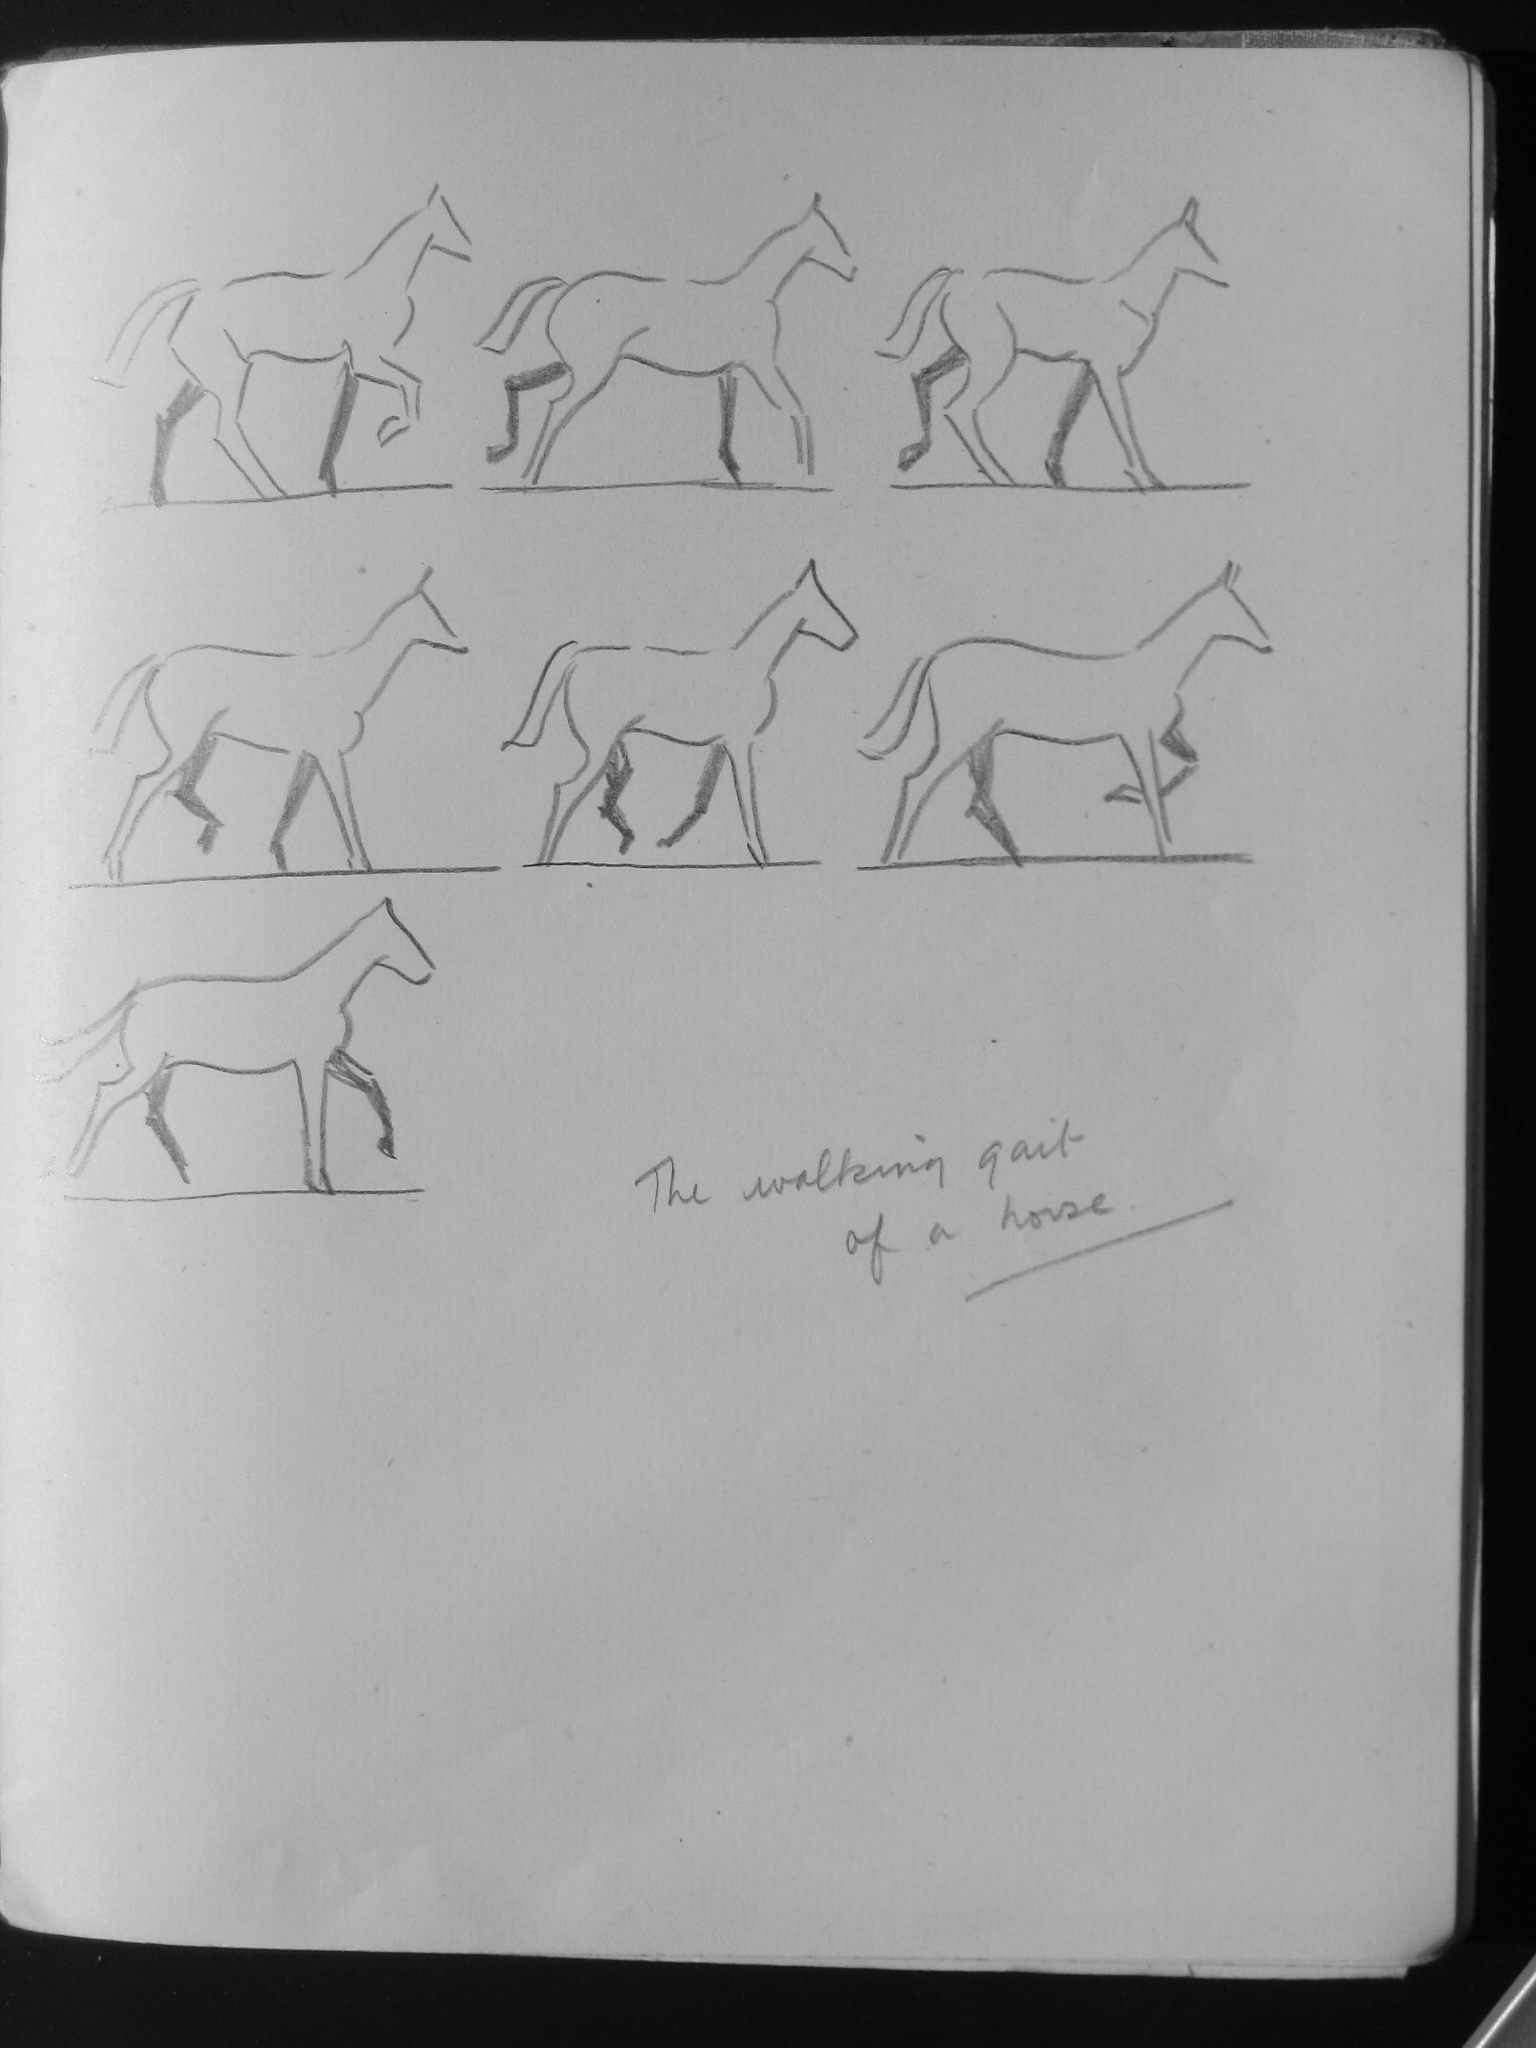 The walking gait
of a horse.